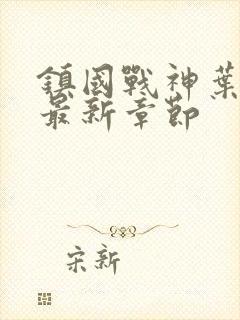 鎮國戰神葉
最新章節
宋新